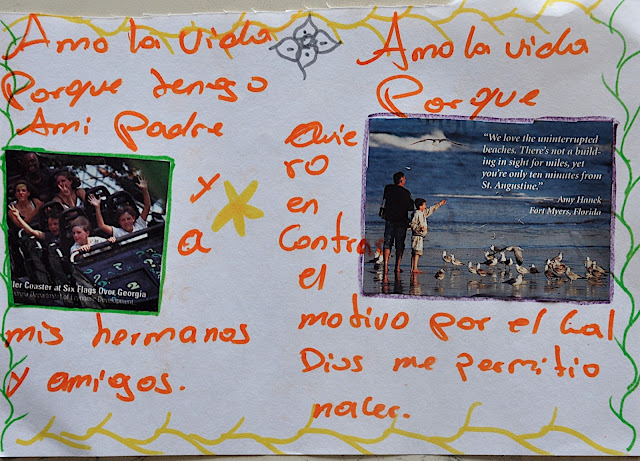 Amo la vida
Porque tenego
Ami padre
y
a
ler Coaster at Six Flags Over Georgia
of Economic Development
mis hermanos
y amigos.
Amo la vida
Porque
Quie
ro
en
Contrar
el
motivo por el Cual
Dios me permitio
nacer.
“We love the uninterrupted
beaches. There's not a build-
ing in sight for miles, yet
you're only ten minutes from
St. Augustine.”
Amy Hanek
Fort Myers, Florida